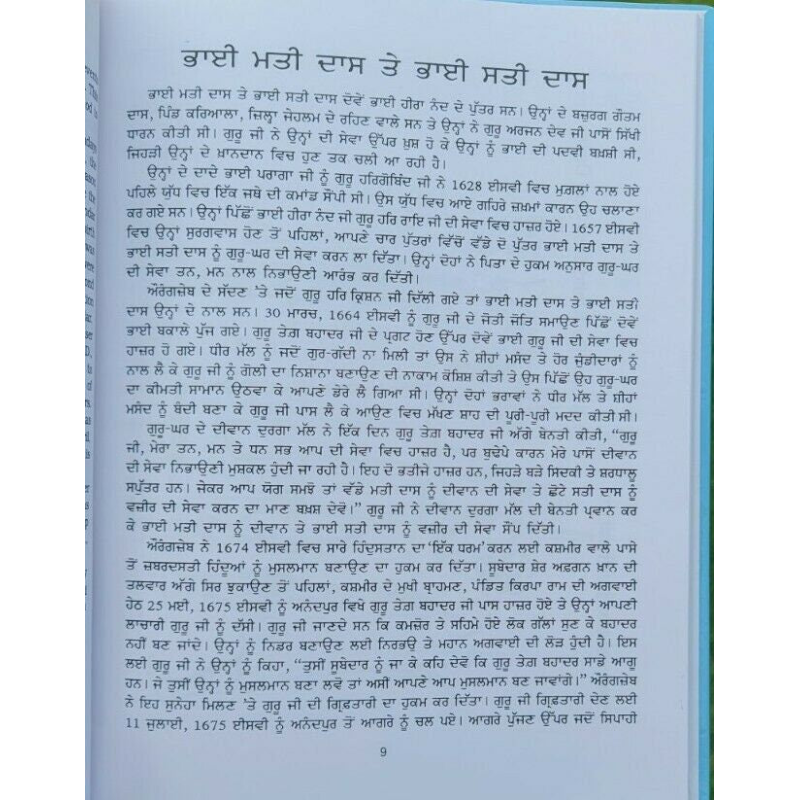 ਭਾਈ ਮਤੀ ਦਾਸ ਤੇ ਭਾਈ ਸਤੀ ਦਾਸ
ਭਾਈ ਮਤੀ ਦਾਸ ਤੇ ਭਾਈ ਸਤੀ ਦਾਸ ਦੋਵੇਂ ਭਾਈ ਹੀਰਾ ਨੰਦ ਦੇ ਪੁੱਤਰ ਸਨ। ਉਨ੍ਹਾਂ ਦੇ ਬਜ਼ੁਰਗ ਗੌਤਮ
ਦਾਸ, ਪਿੰਡ ਕਰਿਆਲਾ, ਜ਼ਿਲ੍ਹਾ ਜੇਹਲਮ ਦੇ ਰਹਿਣ ਵਾਲੇ ਸਨ ਤੇ ਉਨ੍ਹਾਂ ਨੇ ਗੁਰੂ ਅਰਜਨ ਦੇਵ ਜੀ ਪਾਸੋਂ ਸਿੱਖੀ
ਧਾਰਨ ਕੀਤੀ ਸੀ। ਗੁਰੂ ਜੀ ਨੇ ਉਨ੍ਹਾਂ ਦੀ ਸੇਵਾ ਉੱਪਰ ਖ਼ੁਸ਼ ਹੋ ਕੇ ਉਨ੍ਹਾਂ ਨੂੰ ਭਾਈ ਦੀ ਪਦਵੀ ਬਖ਼ਸ਼ੀ ਸੀ,
ਜਿਹੜੀ ਉਨ੍ਹਾਂ ਦੇ ਖ਼ਾਨਦਾਨ ਵਿਚ ਹੁਣ ਤਕ ਚਲੀ ਆ ਰਹੀ ਹੈ।
ਉਨ੍ਹਾਂ ਦੇ ਦਾਦੇ ਭਾਈ ਪਰਾਗਾ ਜੀ ਨੂੰ ਗੁਰੂ ਹਰਿਗੋਬਿੰਦ ਜੀ ਨੇ 1628 ਈਸਵੀ ਵਿਚ ਮੁਗ਼ਲਾਂ ਨਾਲ ਹੋਏ
ਪਹਿਲੇ ਯੁੱਧ ਵਿਚ ਇੱਕ ਜਥੇ ਦੀ ਕਮਾਂਡ ਸੌਂਪੀ ਸੀ। ਉਸ ਯੁੱਧ ਵਿਚ ਆਏ ਗਹਿਰੇ ਜ਼ਖ਼ਮਾਂ ਕਾਰਨ ਉਹ ਚਲਾਣਾ
ਕਰ ਗਏ ਸਨ। ਉਨ੍ਹਾਂ ਪਿੱਛੋਂ ਭਾਈ ਹੀਰਾ ਨੰਦ ਜੀ ਗੁਰੂ ਹਰਿ ਰਾਇ ਜੀ ਦੀ ਸੇਵਾ ਵਿਚ ਹਾਜ਼ਰ ਹੋਏ। 1657 ਈਸਵੀ
ਵਿਚ ਉਨ੍ਹਾਂ ਸੁਰਗਵਾਸ ਹੋਣ ਤੋਂ ਪਹਿਲਾਂ, ਆਪਣੇ ਚਾਰ ਪੁੱਤਰਾਂ ਵਿੱਚੋਂ ਵੱਡੇ ਦੋ ਪੁੱਤਰ ਭਾਈ ਮਤੀ ਦਾਸ ਤੇ
ਭਾਈ ਸਤੀ ਦਾਸ ਨੂੰ ਗੁਰੂ-ਘਰ ਦੀ ਸੇਵਾ ਕਰਨ ਲਾ ਦਿੱਤਾ। ਉਨ੍ਹਾਂ ਦੋਹਾਂ ਨੇ ਪਿਤਾ ਦੇ ਹੁਕਮ ਅਨੁਸਾਰ ਗੁਰੂ-ਘਰ
ਦੀ ਸੇਵਾ ਤਨ, ਮਨ ਨਾਲ ਨਿਭਾਉਣੀ ਆਰੰਭ ਕਰ ਦਿੱਤੀ।
ਔਰੰਗਜ਼ੇਬ ਦੇ ਸੱਦਣ 'ਤੇ ਜਦੋਂ ਗੁਰੂ ਹਰਿ ਕ੍ਰਿਸ਼ਨ ਜੀ ਦਿੱਲੀ ਗਏ ਤਾਂ ਭਾਈ ਮਤੀ ਦਾਸ ਤੇ ਭਾਈ ਸਤੀ
ਦਾਸ ਉਨ੍ਹਾਂ ਦੇ ਨਾਲ ਸਨ। 30 ਮਾਰਚ, 1664 ਈਸਵੀ ਨੂੰ ਗੁਰੂ ਜੀ ਦੇ ਜੋਤੀ ਜੋਤਿ ਸਮਾਉਣ ਪਿੱਛੋਂ ਦੋਵੇਂ
ਭਾਈ ਬਕਾਲੇ ਪੁੱਜ ਗਏ। ਗੁਰੂ ਤੇਗ਼ ਬਹਾਦਰ ਜੀ ਦੇ ਪ੍ਰਗਟ ਹੋਣ ਉੱਪਰ ਦੋਵੇਂ ਭਾਈ ਗੁਰੂ ਜੀ ਦੀ ਸੇਵਾ ਵਿਚ
ਹਾਜ਼ਰ ਹੋ ਗਏ। ਧੀਰ ਮੱਲ ਨੂੰ ਜਦੋਂ ਗੁਰ-ਗੱਦੀ ਨਾ ਮਿਲੀ ਤਾਂ ਉਸ ਨੇ ਸ਼ੀਹਾਂ ਮਸੰਦ ਤੇ ਹੋਰ ਜੁੰਡੀਦਾਰਾਂ ਨੂੰ
ਨਾਲ ਲੈ ਕੇ ਗੁਰੂ ਜੀ ਨੂੰ ਗੋਲੀ ਦਾ ਨਿਸ਼ਾਨਾ ਬਣਾਉਣ ਦੀ ਨਾਕਾਮ ਕੋਸ਼ਿਸ਼ ਕੀਤੀ ਤੇ ਉਸ ਪਿੱਛੋਂ ਉਹ ਗੁਰੂ-ਘਰ
ਦਾ ਕੀਮਤੀ ਸਾਮਾਨ ਉਠਵਾ ਕੇ ਆਪਣੇ ਡੇਰੇ ਲੈ ਗਿਆ ਸੀ। ਉਨ੍ਹਾਂ ਦੋਹਾਂ ਭਰਾਵਾਂ ਨੇ ਧੀਰ ਮੱਲ ਤੇ ਸ਼ੀਹਾਂ
ਮਸੰਦ ਨੂੰ ਬੰਦੀ ਬਣਾ ਕੇ ਗੁਰੂ ਜੀ ਪਾਸ ਲੈ ਕੇ ਆਉਣ ਵਿਚ ਮੱਖਣ ਸ਼ਾਹ ਦੀ ਪੂਰੀ-ਪੂਰੀ ਮਦਦ ਕੀਤੀ ਸੀ।
ਗੁਰੂ-ਘਰ ਦੇ ਦੀਵਾਨ ਦੁਰਗਾ ਮੱਲ ਨੇ ਇੱਕ ਦਿਨ ਗੁਰੂ ਤੇਗ਼ ਬਹਾਦਰ ਜੀ ਅੱਗੇ ਬੇਨਤੀ ਕੀਤੀ, “ਗੁਰੂ
ਜੀ, ਮੇਰਾ ਤਨ, ਮਨ ਤੇ ਧਨ ਸਭ ਆਪ ਦੀ ਸੇਵਾ ਵਿਚ ਹਾਜ਼ਰ ਹੈ, ਪਰ ਬੁਢੇਪੇ ਕਾਰਨ ਮੇਰੇ ਪਾਸੋਂ ਦੀਵਾਨ
ਦੀ ਸੇਵਾ ਨਿਭਾਉਣੀ ਮੁਸ਼ਕਲ ਹੁੰਦੀ ਜਾ ਰਹੀ ਹੈ। ਇਹ ਦੋ ਭਤੀਜੇ ਹਾਜ਼ਰ ਹਨ, ਜਿਹੜੇ ਬੜੇ ਸਿਦਕੀ ਤੇ ਸ਼ਰਧਾਲੂ
ਸਪੁੱਤਰ ਹਨ। ਜੇਕਰ ਆਪ ਯੋਗ ਸਮਝੋ ਤਾਂ ਵੱਡੇ ਮਤੀ ਦਾਸ ਨੂੰ ਦੀਵਾਨ ਦੀ ਸੇਵਾ ਤੇ ਛੋਟੇ ਸਤੀ ਦਾਸ ਨੂੰ
ਵਜ਼ੀਰ ਦੀ ਸੇਵਾ ਕਰਨ ਦਾ ਮਾਣ ਬਖ਼ਸ਼ ਦੇਵੋ।” ਗੁਰੂ ਜੀ ਨੇ ਦੀਵਾਨ ਦੁਰਗਾ ਮੱਲ ਦੀ ਬੇਨਤੀ ਪ੍ਰਵਾਨ ਕਰ
ਕੇ ਭਾਈ ਮਤੀ ਦਾਸ ਨੂੰ ਦੀਵਾਨ ਤੇ ਭਾਈ ਸਤੀ ਦਾਸ ਨੂੰ ਵਜ਼ੀਰ ਦੀ ਸੇਵਾ ਸੌਂਪ ਦਿੱਤੀ।
ਔਰੰਗਜ਼ੇਬ ਨੇ 1674 ਈਸਵੀ ਵਿਚ ਸਾਰੇ ਹਿੰਦੁਸਤਾਨ ਦਾ 'ਇੱਕ ਧਰਮ' ਕਰਨ ਲਈ ਕਸ਼ਮੀਰ ਵਾਲੇ ਪਾਸੇ
ਤੋਂ ਜ਼ਬਰਦਸਤੀ ਹਿੰਦੂਆਂ ਨੂੰ ਮੁਸਲਮਾਨ ਬਣਾਉਣ ਦਾ ਹੁਕਮ ਕਰ ਦਿੱਤਾ। ਸੂਬੇਦਾਰ ਸ਼ੇਰ ਅਫ਼ਗਨ ਖ਼ਾਨ ਦੀ
ਤਲਵਾਰ ਅੱਗੇ ਸਿਰ ਝੁਕਾਉਣ ਤੋਂ ਪਹਿਲਾਂ, ਕਸ਼ਮੀਰ ਦੇ ਮੁਖੀ ਬ੍ਰਾਹਮਣ, ਪੰਡਿਤ ਕਿਰਪਾ ਰਾਮ ਦੀ ਅਗਵਾਈ
ਹੇਠ 25 ਮਈ, 1675 ਈਸਵੀ ਨੂੰ ਅਨੰਦਪੁਰ ਵਿਖੇ ਗੁਰੂ ਤੇਗ਼ ਬਹਾਦਰ ਜੀ ਪਾਸ ਹਾਜ਼ਰ ਹੋਏ ਤੇ ਉਨ੍ਹਾਂ ਆਪਣੀ
ਲਾਚਾਰੀ ਗੁਰੂ ਜੀ ਨੂੰ ਦੱਸੀ। ਗੁਰੂ ਜੀ ਜਾਣਦੇ ਸਨ ਕਿ ਕਮਜ਼ੋਰ ਤੇ ਸਹਿਮੇ ਹੋਏ ਲੋਕ ਗੱਲਾਂ ਸੁਣ ਕੇ ਬਹਾਦਰ
ਨਹੀਂ ਬਣ ਜਾਂਦੇ। ਉਨ੍ਹਾਂ ਨੂੰ ਨਿਡਰ ਬਣਾਉਣ ਲਈ ਨਿਰਭਉ ਤੇ ਮਹਾਨ ਅਗਵਾਈ ਦੀ ਲੋੜ ਹੁੰਦੀ ਹੈ। ਇਸ
ਲਈ ਗੁਰੂ ਜੀ ਨੇ ਉਨ੍ਹਾਂ ਨੂੰ ਕਿਹਾ, “ਤੁਸੀਂ ਸੂਬੇਦਾਰ ਨੂੰ ਜਾ ਕੇ ਕਹਿ ਦੇਵੋ ਕਿ ਗੁਰੂ ਤੇਗ਼ ਬਹਾਦਰ ਸਾਡੇ ਆਗੂ
ਹਨ। ਜੇ ਤੁਸੀਂ ਉਨ੍ਹਾਂ ਨੂੰ ਮੁਸਲਮਾਨ ਬਣਾ ਲਵੋ ਤਾਂ ਅਸੀਂ ਆਪਣੇ ਆਪ ਮੁਸਲਮਾਨ ਬਣ ਜਾਵਾਂਗੇ।” ਔਰੰਗਜ਼ੇਬ
ਨੇ ਇਹ ਸੁਨੇਹਾ ਮਿਲਣ 'ਤੇ ਗੁਰੂ ਜੀ ਦੀ ਗ੍ਰਿਫ਼ਤਾਰੀ ਦਾ ਹੁਕਮ ਕਰ ਦਿੱਤਾ। ਗੁਰੂ ਜੀ ਗ੍ਰਿਫ਼ਤਾਰੀ ਦੇਣ ਲਈ
11 ਜੁਲਾਈ, 1675 ਈਸਵੀ ਨੂੰ ਅਨੰਦਪੁਰ ਤੋਂ ਆਗਰੇ ਨੂੰ ਚਲ ਪਏ। ਆਗਰੇ ਪੁੱਜਣ ਉੱਪਰ ਜਦੋਂ ਸਿਪਾਹੀ
9